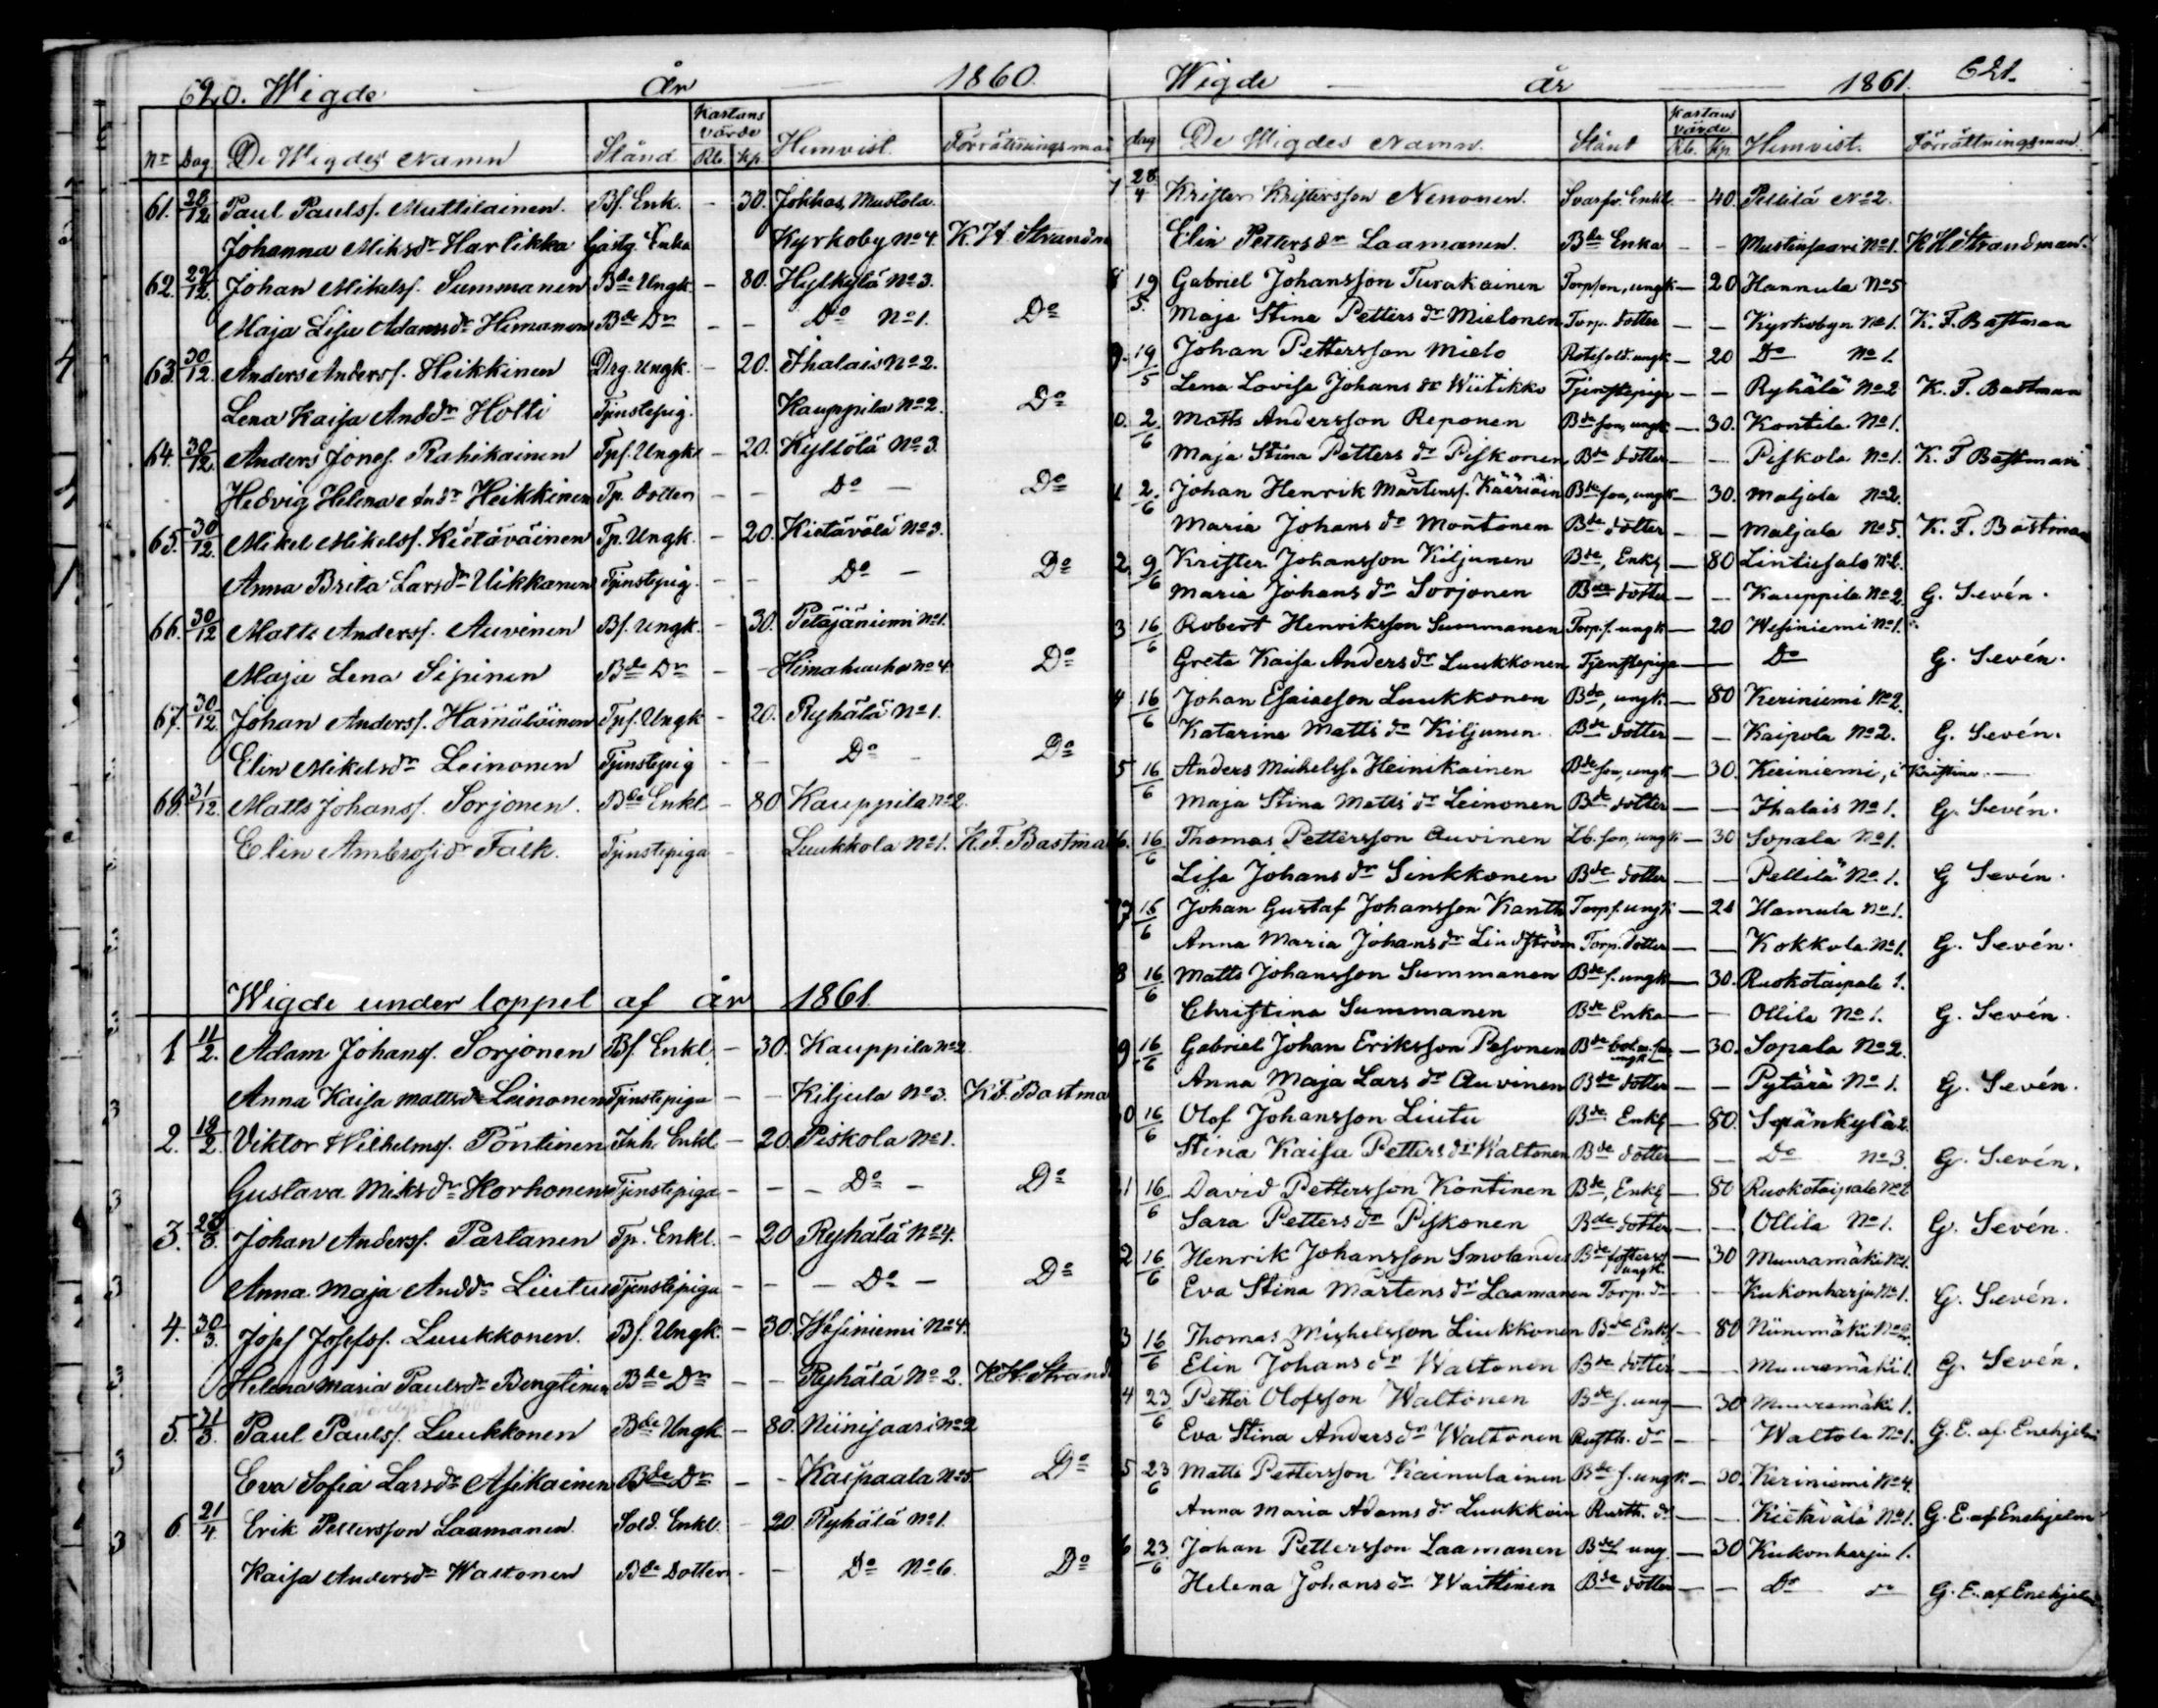 620. Wigde år 1860.
Kastans värde
No Dag De Wigdes Namn Stånd Rb. Kp. Hemvist. Förrättningsman
61. 28/12 Paul Paulsf. Muttilainen. Bf. Enk. - 30. Jokkas, Mustola.
Johanna Miksdr Harlikka Gästg. Enka Kyrkoby No 4. K. H. Strandm
62. 29/12. Johan Mikelsf. Summanen Bde Ungk. - 80. Hylkylä No 3.
Maja Lisa Adamsdr Himanen Bde Dr - - Do No 1. Do
63. 30/12. Anders Andersf. Heikkinen Drg. Ungk. - 20. Ihalais No 2.
Lena Kaisa Anddr Holti Tjenstepig. Kauppila No 2. Do
64. 30/12. Anders Jonef. Rahikainen Tpf. Ungk. - 20. Kyllölä No 3.
Hedvig Helena Andr Heikkinen Tp. Dotter - - Do - Do
65. 30/12. Mikel Mikelsf. Kietäväinen Tp. Ungk. - 20. Kietävälä No 3.
Anna Brita Larsdr Uikkanen Tjenstepig. - - Do - Do
66. 30/12 Matts Andersf. Auvinen Bf. Ungk. - 30. Petäjäniemi No 1.
Maja Lena Sipinen Bde Dr - - No 4. Do
67. 30/12 Johan Andersf. Hämäläinen Tpf. Ungk - 20. Ryhälä No 1.
Elin Mikelsdr Leinonen Tjenstepig - - Do - Do
68. 31/12. Matts Johansf. Sorjonen. Bde Enkl - 80 Kauppila No 2.
Elin Ambrosidr Falk. Tjenstepiga - Luukkola No 1. K. F. Bastma
Wigde under loppet af år 1861
1 11/2. Adam Johansf. Sorjonen Bf. Enkl. - 30. Kauppila No 2.
Anna Kaisa Mattsdr Leinonen Tjenstepiga - - Kiljula No 3. K F. Bastma
2. 18/2. Viktor Wilhelmsf. Pöntinen Inh. Enkl - 20. Piskola No 1.
Gustava Miksdr Korhonen Tjenstepiga - - - Do - Do
3. 28/3. Johan Andersf. Partanen Tp. Enkl. - 20 Ryhälä No 4.
Anna Maja Anddr Liutu Tjenstepiga - - - Do - Do
4. 30/3. Josef Josefsf. Luukkonen. Bf. Ungk. - 30. Wesiniemi No 4.
Helena Maria Paulsdr Bengtinen Bde Dr - - Ryhälä No 2. K H. Strand
5. 31/3. Paul Paulsf. Luukkonen Bde Ungk. - 80. Niinisaari No 2
Eva Sofia Larsdr Asikainen Bde Dr - - Kaipaala No 5. Do
6. 21/4. Erik Pettersson Laamanen. Sold. Enkl. - 20. Ryhälä No 1.
Kaisa Andersdr Waltonen Bde Dotter - - Do No 6. Do
Wigde år 1861. 621.
Kastans värde
dag De Wigdes Namn. Stånd Rb. Kp. Hemvist. Förrättningsman.
7 28/4 Krister Kristersson Nenonen. Svarfv. Enkl. - 40. Pellilä No 2.
Elin Pettersdr Laamanen. Bde Enka - - Mustinsaari No 1. K H Strandman.
8 19/5. Gabriel Johansson Turakainen Torpson, ungk - 20 Hannula No 5
Maja Stina Pettersdr Mielonen Torp. dotter - - Kyrkobyn No 1. K. F. Bastman
9. 19/5 Johan Pettersson Mielo Rotesold. ungk - 20 Do No 1.
Lena Lovisa Johansdr Wiitikko Tjenstepiga - - Ryhälä No 2 K. F. Bastman
0. 2/6 Matts Andersson Reponen Bde son, ungk - 30. Kontila No 1.
Maja Stina Pettersdr Piskonen Bde dotter - - Piskola No 1. K. F Bastman
1 2/6 Johan Henrik Mårtensf. Kääriäin Bde son, ungk - 30. Maljala No 2.
Maria Johansdr Montonen Bde dotter - - Maljala No 5. K. F. Bastman
2 9/6 Krister Johansson Kiljunen Bde, Enkl - 80 Lintusalo No 2.
Maria Johansdr Sorjonen Bde dotter - - Kauppila No 2. G. Sevén.
3 16/6 Robert Henriksson Summanen Torp. s. ungk - 20 Wesiniemi No 1.
Greta Kaisa Andersdr Luukkonen Tjenstepiga - - Do G. Sevén.
4 16/6 Johan Esaiasson Luukkonen Bde, ungk. - 80 Keriniemi No 2.
Katarina Mattsdr Kiljunen. Bde dotter - - Kaipola No 2. G. Sevén.
5 16/6 Anders Michelsf. Heinikainen Bde son, ungk - 30. Keriniemi, i Kristina.
Maja Stina Mattsdr Leinonen Bde dotter - - Ihalais No 1. G. Sevén.
6. 16/6 Thomas Pettersson Auvinen Lb. son, ungk - 30 Sopala No 1.
Lisa Johansdr Sinkkonen Bde dotter - - Pellilä No 1. G Sevén.
7 16/6 Johan Gustaf Johansson Kanth Torpf. ungk - 20 Hamula No 1.
Anna Maria Johansdr Lindström Torp. dotter - - Kokkola No 1. G. Sevén.
8 16/6 Matts Johansson Summanen Bde f. ungk - 30. Ruokotaipale 1.
Christina Summanen Bde Enka - - Ollila No 1. G. Sevén.
9 16/6 Gabriel Johan Eriksson Pesonen Bde ungk - 30. Sopala No 2.
Anna Maja Larsdr Auvinen Bde dotter - - Pytärä No 1. G. Sevén.
0 16/6 Olof Johansson Liutu Bde Enkl - 80. Sepänkylä 2.
Stina Kaisa Pettersdr Waltonen Bde dotter - - Do No 3. G. Sevén.
1 16/6 David Pettersson Kontinen Bde, Enkl - 80 Ruokotaipale No 2
Sara Pettersdr Piskonen Bde dotter - - Ollila No 1. G. Sevén.
2 16/6 Henrik Johansson Smolander Bde ungk. - 30 Muuramäki No 1.
Eva Stina Mårtensdr Laamanen Torp. dr - - Kukonharju No 1. G. Sevén.
3 16/6 Thomas Michelsson Liukkonen Bde Enkl - 80 Niinimäki No 2.
Elin Johansdr Waltonen Bde dotter - - Muuramäki 1. G. Sevén.
4 23/6 Petter Olofsson Waltonen Bde f. ung - 30 Muuramäki 1.
Eva Stina Andersdr Waltonen Rusth. dr - - Waltola No 1. G. E. af Enehjelm
5 23/6 Matts Pettersson Kainulainen Bde f. ungk - 30. Keriniemi No 4.
Anna Maria Adamsdr Luukkain Rusth. dr - - Kietävälä No 1. G. E. af Enehjelm
6 23/6 Johan Pettersson Laamanen Bdef ung. - 30 Kukonharju 1.
Helena Johansdr Waittinen Bde dotter - - Do do G. E. af Enehjelm